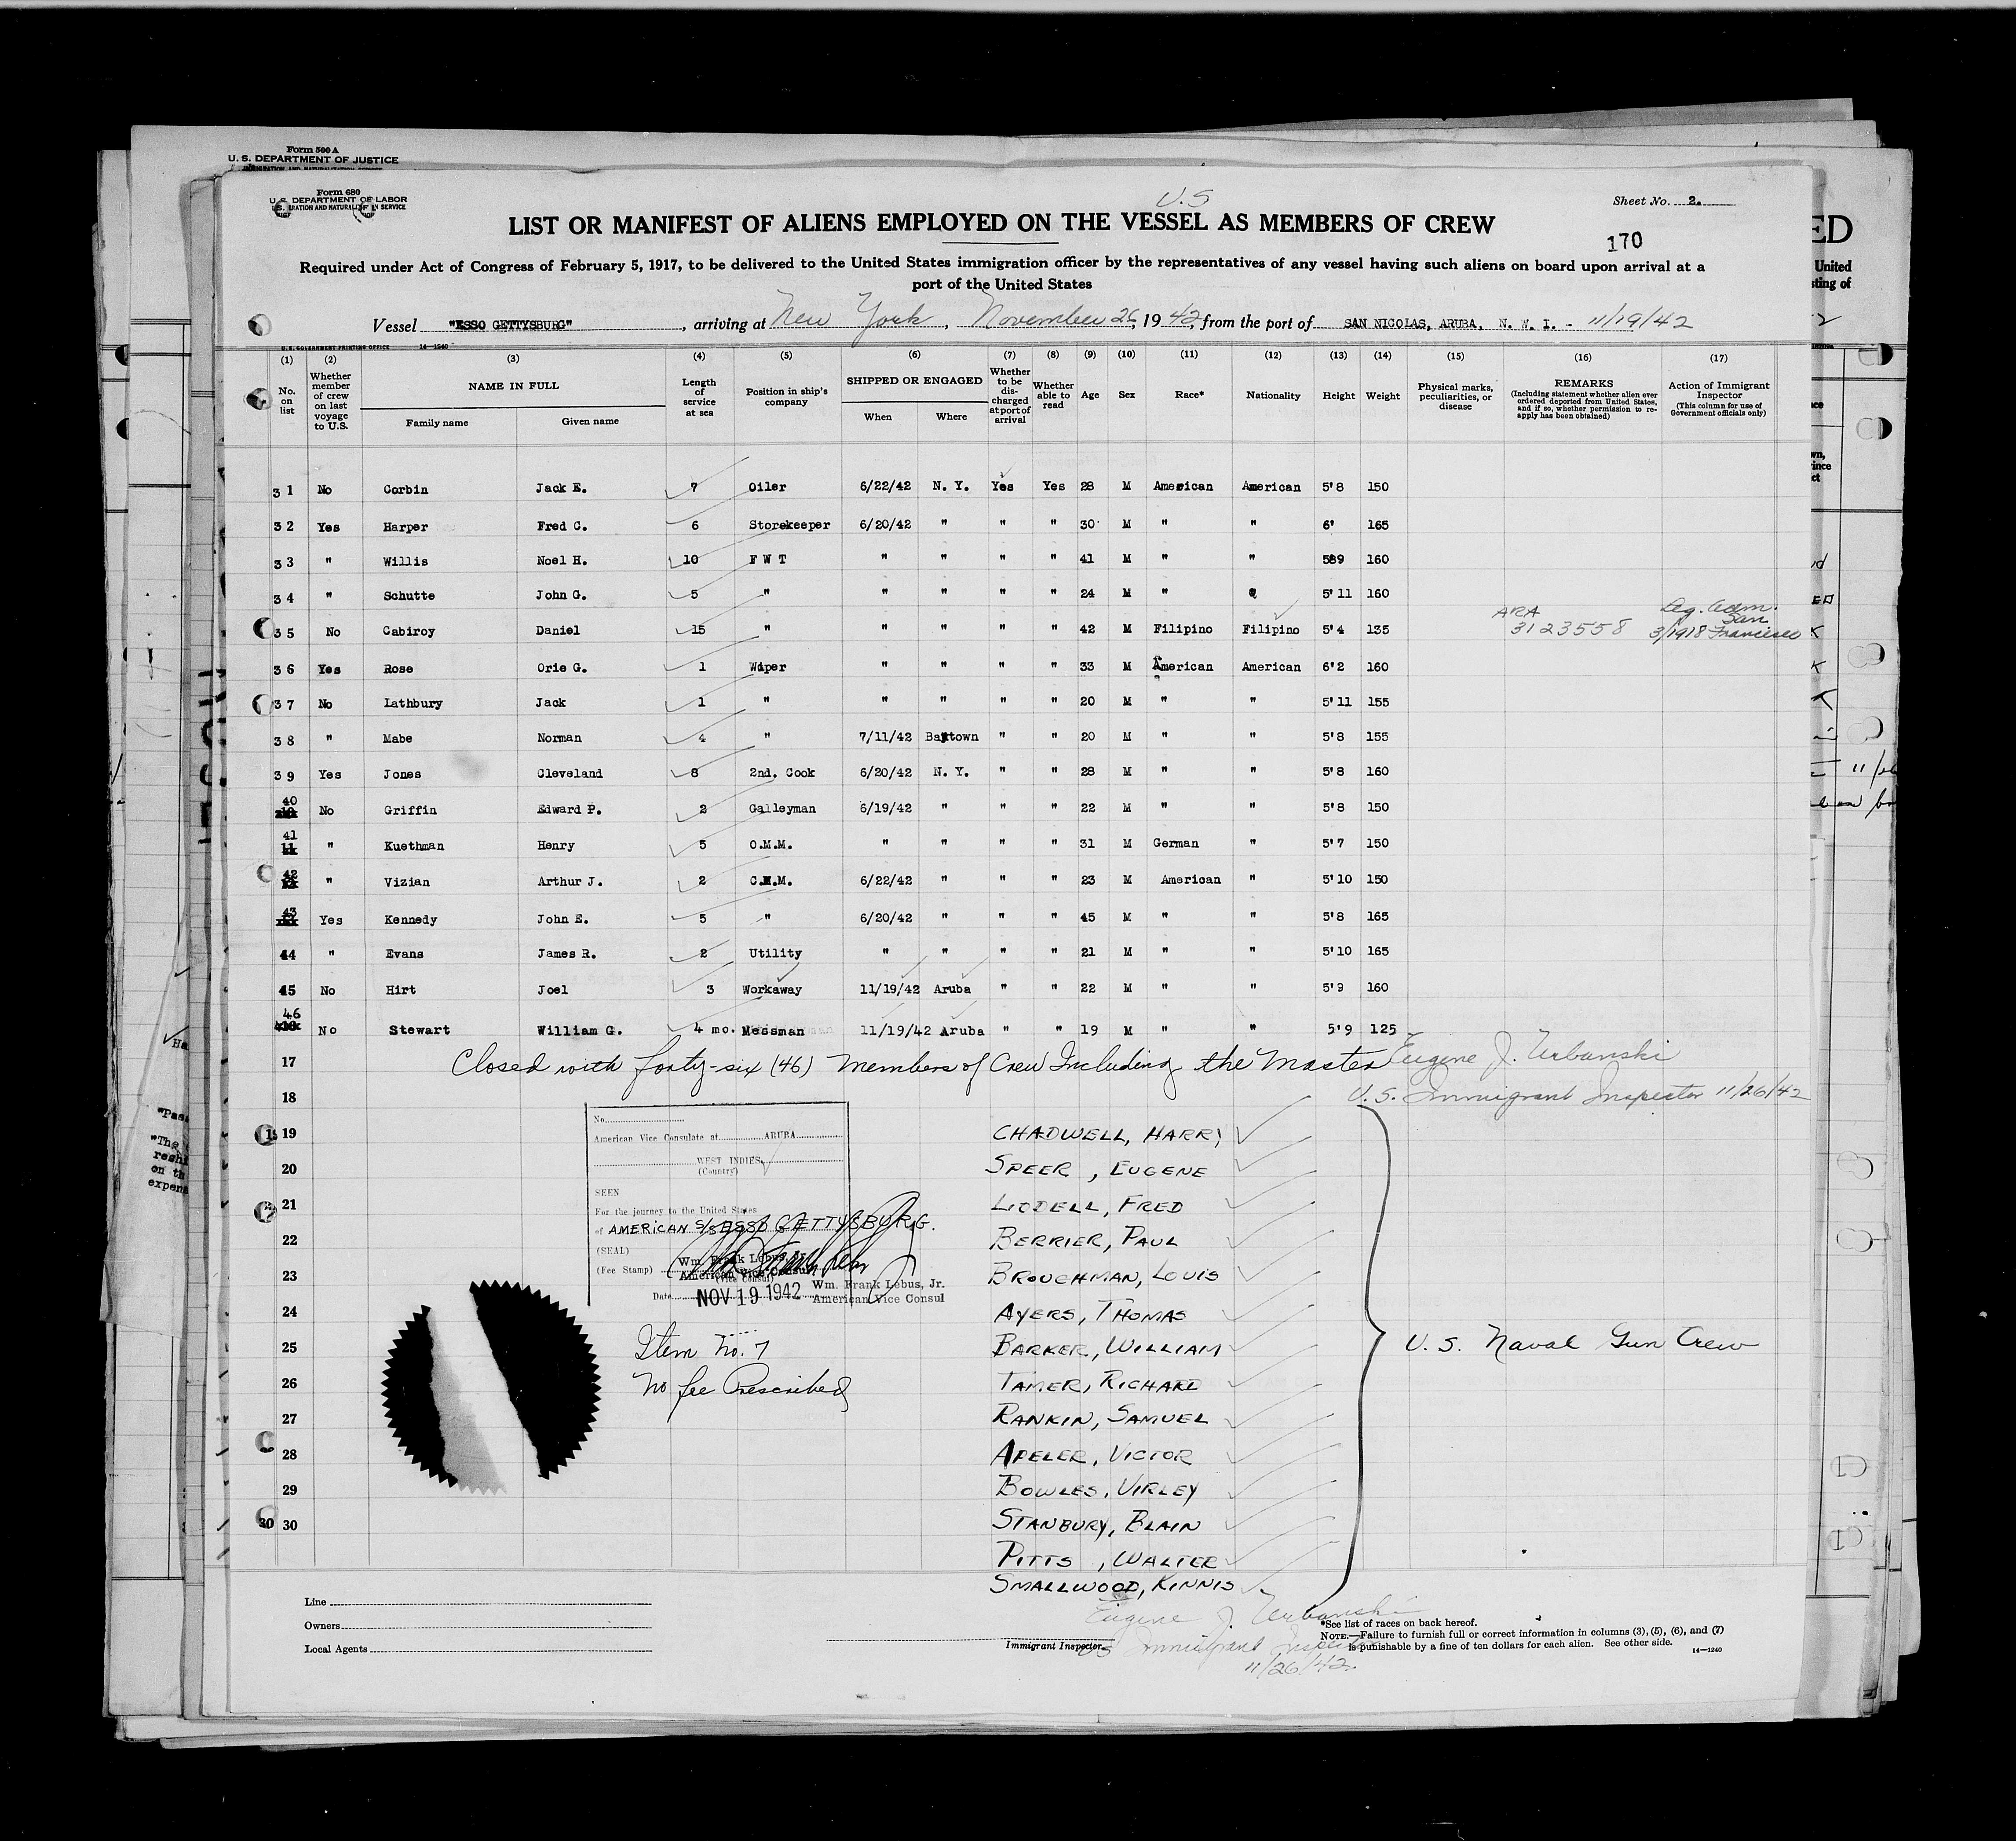 Form 500 A
U. S. DEPARTMENT OF JUSTICE
Form 680
U. S. DEPARTMENT OF LABOR
U.S
Sheet No. 2.
LIST OR MANIFEST OF ALIENS EMPLOYED ON THE VESSEL AS MEMBERS OF CREW
170
Required under Act of Congress of February 5, 1917, to be delivered to the United States immigration officer by the representatives of any vessel having such aliens on board upon arrival at a
port of the United States
Vessel "ESSO GETTYSBURG", arriving at New York, November 26, 1942, from the port of SAN NICOLAS, ARUBA, N. W. I. - 11/19/42
U. S. GOVERNMENT PRINTING OFFICE 14—1240
(1) (2) (3) (4) (5) (6) (7) (8) (9) (10) (11) (12) (13) (14) (15) (16) (17)
No. on list
Whether member of crew on last voyage to U.S.
NAME IN FULL
Family name Given name
Length of service at sea
Position in ship's company
SHIPPED OR ENGAGED
When Where
Whether to be discharged at port of arrival
Whether able to read
Age
Sex
Race*
Nationality
Height
Weight
Physical marks, peculiarities, or disease
REMARKS
(Including statement whether alien ever ordered deported from United States, and if so, whether permission to reapply has been obtained)
Action of Immigrant Inspector
(This column for use of Government officials only)
31 No Corbin Jack E. 7 Oiler 6/22/42 N. Y. Yes Yes 28 M American American 5'8 150
32 Yes Harper Fred C. 6 Storekeeper 6/20/42 " " " 30 M " " 6' 165
33 " Willis Noel H. 10 F W T " " " " 41 M " " 5'9 160
34 " Schutte John G. 5 " " " " " 24 M " " 5'11 160
35 No Cabiroy Daniel 15 " " " " " 42 M Filipino Filipino 5'4 135 ARA 3123558 Leg. Adm. San Francisco 3/1918
36 Yes Rose Orie G. 1 Wiper " " " " 33 M American American 6'2 160
37 No Lathbury Jack 1 " " " " " 20 M " " 5'11 155
38 " Mabe Norman 4 " 7/11/42 Baytown " " 20 M " " 5'8 155
39 Yes Jones Cleveland 8 2nd. Cook 6/20/42 N. Y. " " 28 M " " 5'8 160
40 No Griffin Edward P. 2 Galleyman 6/19/42 " " " 22 M " " 5'8 150
41 " Kuethman Henry 5 O.M.M. " " " " 31 M German " 5'7 150
42 " Vizian Arthur J. 2 C.M.M. 6/22/42 " " " 23 M American " 5'10 150
43 Yes Kennedy John E. 5 " 6/20/42 " " " 45 M " " 5'8 165
44 " Evans James R. 2 Utility " " " " 21 M " " 5'10 165
45 No Hirt Joel 3 Workaway 11/19/42 Aruba " " 22 M " " 5'9 160
46 No Stewart William G. 4 mo. Messman 11/19/42 Aruba " " 19 M " " 5'9 125
17 Closed with forty-six (46) Members of Crew Including the Master Eugene J. Urbanski
18 U. S. Immigrant Inspector 11/26/42
No.
American Vice Consulate at ARUBA
WEST INDIES
(Country)
SEEN
For the journey to the United States
of AMERICAN S/S ESSO GETTYSBURG.
(SEAL)
(Fee Stamp)
Wm. Frank Lebus, Jr.
American Vice Consul
(Vice Consul)
Wm. Frank Lebus, Jr.
American Vice Consul
Date NOV 19 1942
Item No. 7
No fee Prescribed
19 CHADWELL, HARRY
20 SPEER, EUGENE
21 LIDDELL, FRED
22 BERRIER, PAUL
23 BROUGHMAN, LOUIS
24 AYERS, THOMAS
25 BARKER, WILLIAM
26 TAMER, RICHARD
27 RANKIN, SAMUEL
28 APELER, VICTOR
29 BOWLES, VIRLEY
30 STANBURY, BLAIN
PITTS, WALTER
SMALLWOOD, KINNIS
U. S. Naval Gun Crew
Line
Owners
Local Agents
Eugene J. Urbanski
Immigrant Inspector
US Immigrant Inspector
11/26/42.
*See list of races on back hereof.
NOTE.—Failure to furnish full or correct information in columns (3), (5), (6), and (7)
is punishable by a fine of ten dollars for each alien. See other side.
14—1240